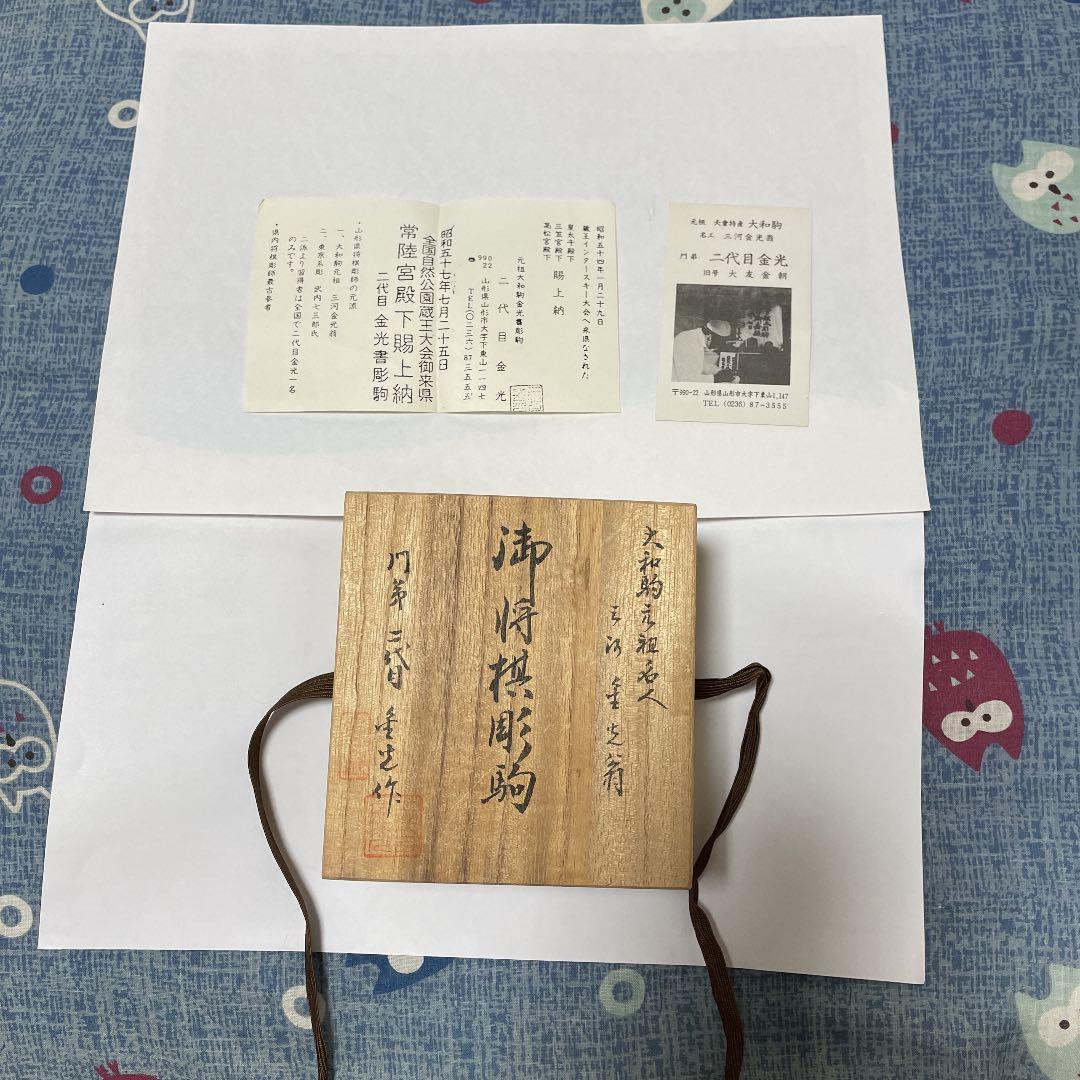 昭和五十四年一月二十九日
蔵王インタースキー大会へ来県なされた
皇太子殿下
三笠宮殿下 賜上納
高松宮殿下
元祖大和駒金光書彫駒
二代目 金光
990
22 山形県山形市大字下東山一一四七
TEL(〇二三六)87三五五五
昭和五十七年七月二十五日
全国自然公園蔵王大会御来県
常陸宮殿下賜上納
二代目 金光書彫駒
・山形県将棋彫師の元流
一、大和駒元祖 三河金光翁
二、東京系彫 武内七三郎氏
二派より習得者は全国で二代目金光一名
のみです。
・県内将棋彫師最古参者
元祖 天童特産 大和駒
名工 三河金光翁
門弟 二代目金光
旧号 大友金朝
〒990-22 山形県山形市大字下東山1,147
TEL (0236) 87-3555
大和駒元祖名人
三河金光翁
御将棋彫駒
門弟 二代目
金光作